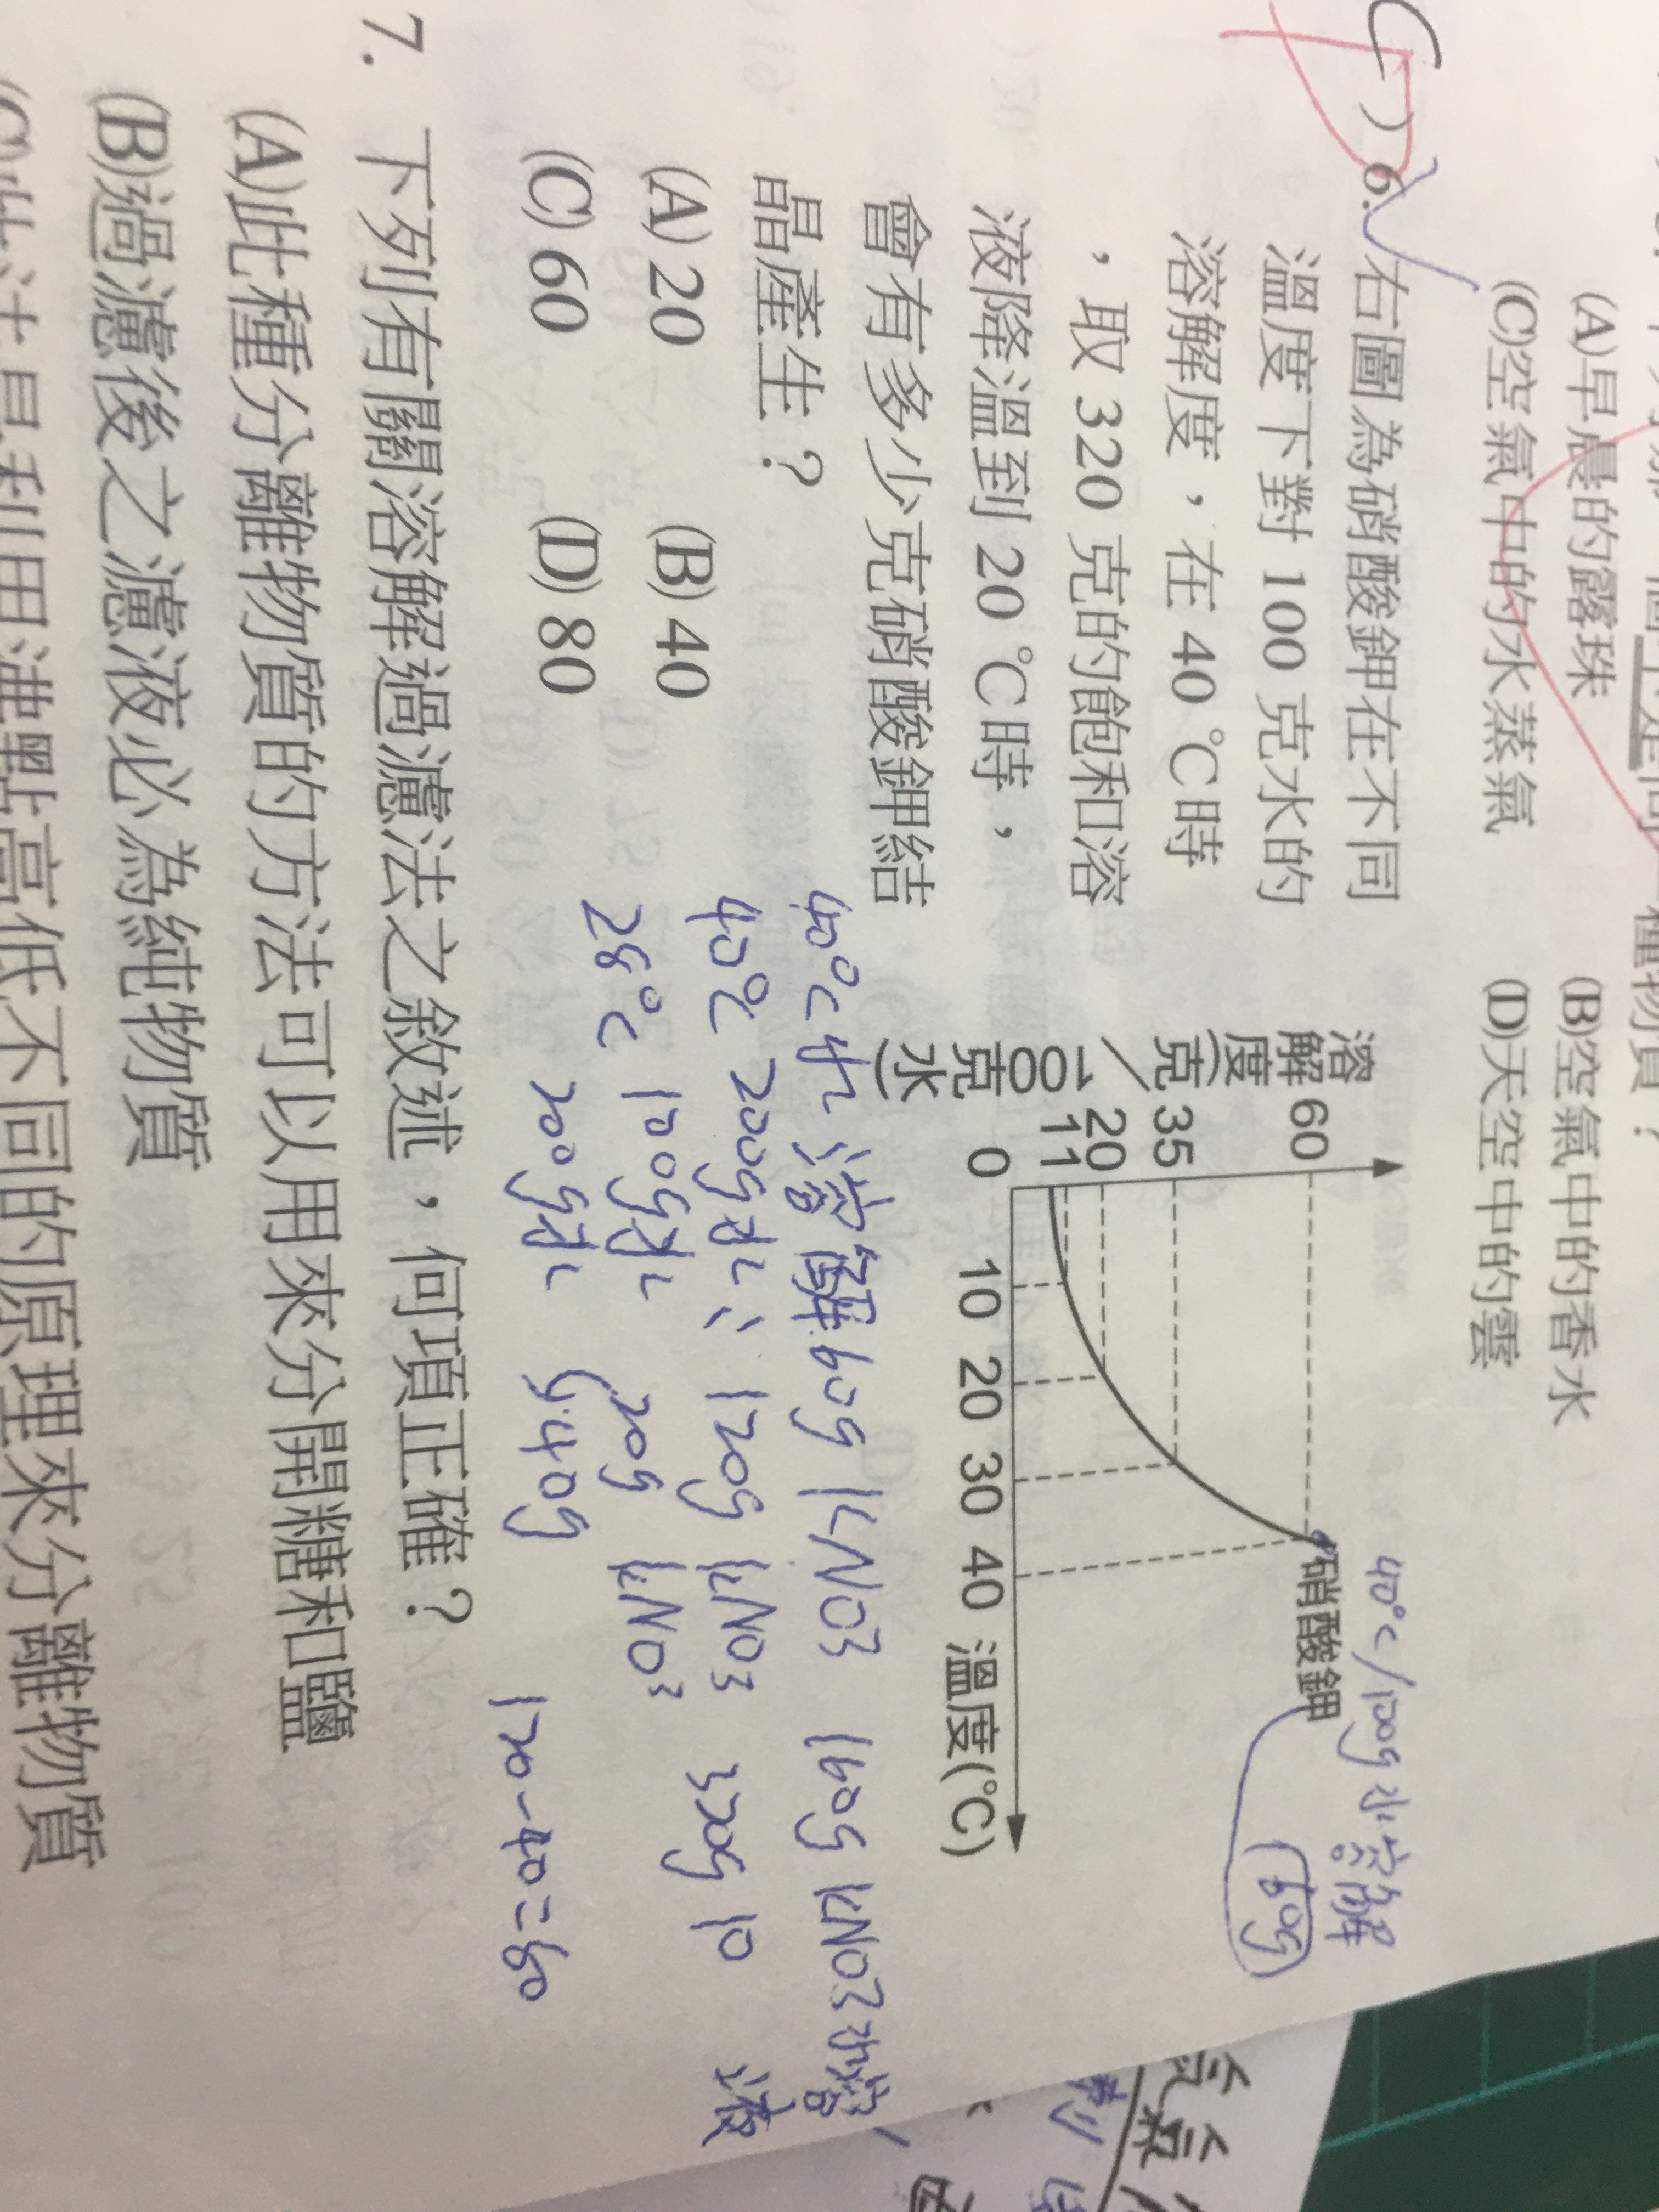 (A)早晨的露珠 (B)空氣中的香水
(C)空氣中的水蒸氣 (D)天空中的雲
( C ) 6. 右圖為硝酸鉀在不同
溫度下對 100 克水的
溶解度，在 40 ℃時
，取 320 克的飽和溶
液降溫到 20 ℃時，
會有多少克硝酸鉀結
晶產生？
(A) 20 (B) 40
(C) 60 (D) 80
溶解度(克/100克水)
60
35
20
11
0
10 20 30 40 溫度(℃)
硝酸鉀
40℃/100g水溶解
60g
40℃水溶解60g KNO3 160g KNO3水溶
40℃ 200g水 120g KNO3 320g 液
28℃ 100g水 20g KNO3
200g水 40g 120-40=80
7. 下列有關溶解過濾法之敘述，何項正確？
(A)此種分離物質的方法可以用來分開糖和鹽
(B)過濾後之濾液必為純物質
(C)此法是利用沸點高低不同的原理來分離物質